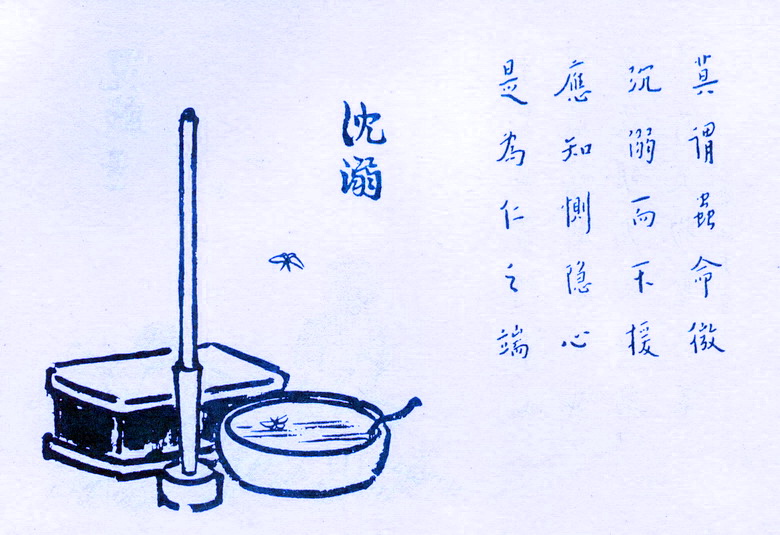 莫謂蟲命微
沉溺而不援
應知惻隐心
是為仁之端
沈溺